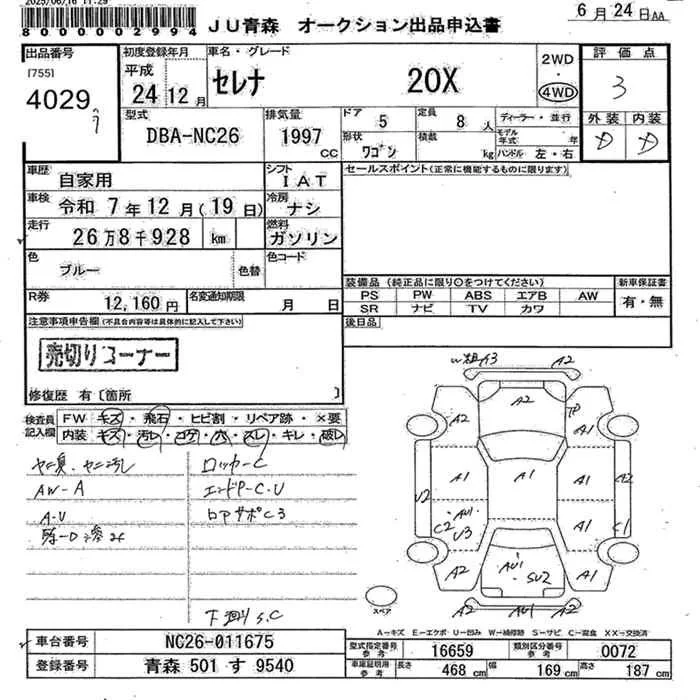 2025/06/16 11:29
8000002994
JU青森 オークション出品申込書
6月24日AA
出品番号
[755]
4029
初度登録年月
平成
24 12月
車名・グレード
セレナ 20X
2WD
・
4WD
評価点
3
外装 内装
D D
型式
DBA-NC26
排気量
1997 CC
ドア 5
定員 8人
形状 ワゴン
積載 kg
ディーラー・並行
モデル年式 年
ハンドル 左・右
車歴 自家用
シフト IAT
車検 令和 7年12月(19日)
冷房 ナシ
走行 26万8千928 km
燃料 ガソリン
色 ブルー
色替
色コード
R券 12,160円
名変通知期限 月 日
セールスポイント(正常に機能するものに限ります)
装備品(純正品に限り○をつけてください)
PS PW ABS エアB AW
SR ナビ TV カワ
新車保証書
有・無
後日品
注意事項申告欄(不具合内容等は具体的に記入して下さい)
売切りコーナー
修復歴 有〔箇所 〕
検査員記入欄
FW キズ・飛石・ヒビ割・リペア跡・×要
内装 キズ・汚レ・コゲ・穴・スレ・キレ・破レ
ヤニ臭.ヤニ汚し
AW-A
A-U
ロッカーC
エンドP-C.U
ロアサポC3
下廻りS.C
A3 A2
A2
TP
A1
A1 A1 A1 A2
U2
AU1
C2 U3
A1 C1
A2 AU1 SU2 A1
A2 AU1 A2
スペア
A-キズ E-エクボ U-凹み W-補修跡 S-サビ C-腐食 XX-交換済
車台番号 NC26-011675
登録番号 青森 501 す 9540
型式指定番号 参考 16659
類別区分番号 参考 0072
車庫証明用 参考
長さ 468 cm
幅 169 cm
高さ 187 cm